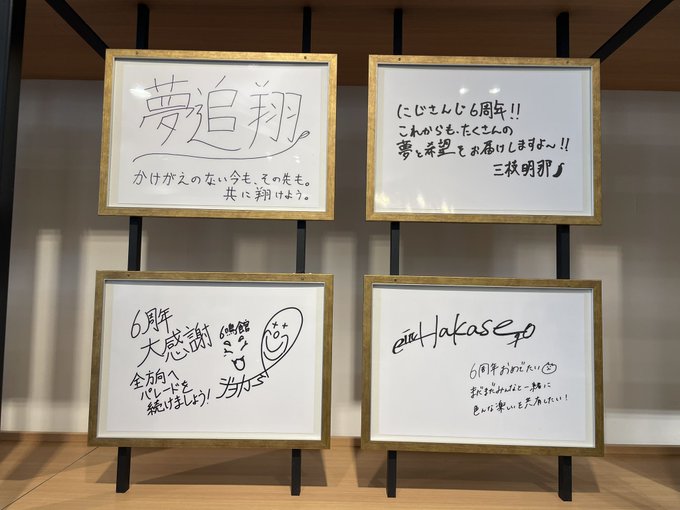 夢追翔
かけがえのない今も、その先も。
共に翔けよう。
にじさんじ6周年!!
これからも、たくさんの
夢と希望をお届けしますよ〜!!
三枝明那
6周年
大感謝
全方向へ
パレードを
続けましょう!
6鳴館
ジョカら
Hakase
6周年おめでたい
まだまだみんなと一緒に
色んな楽しいを共有したい!